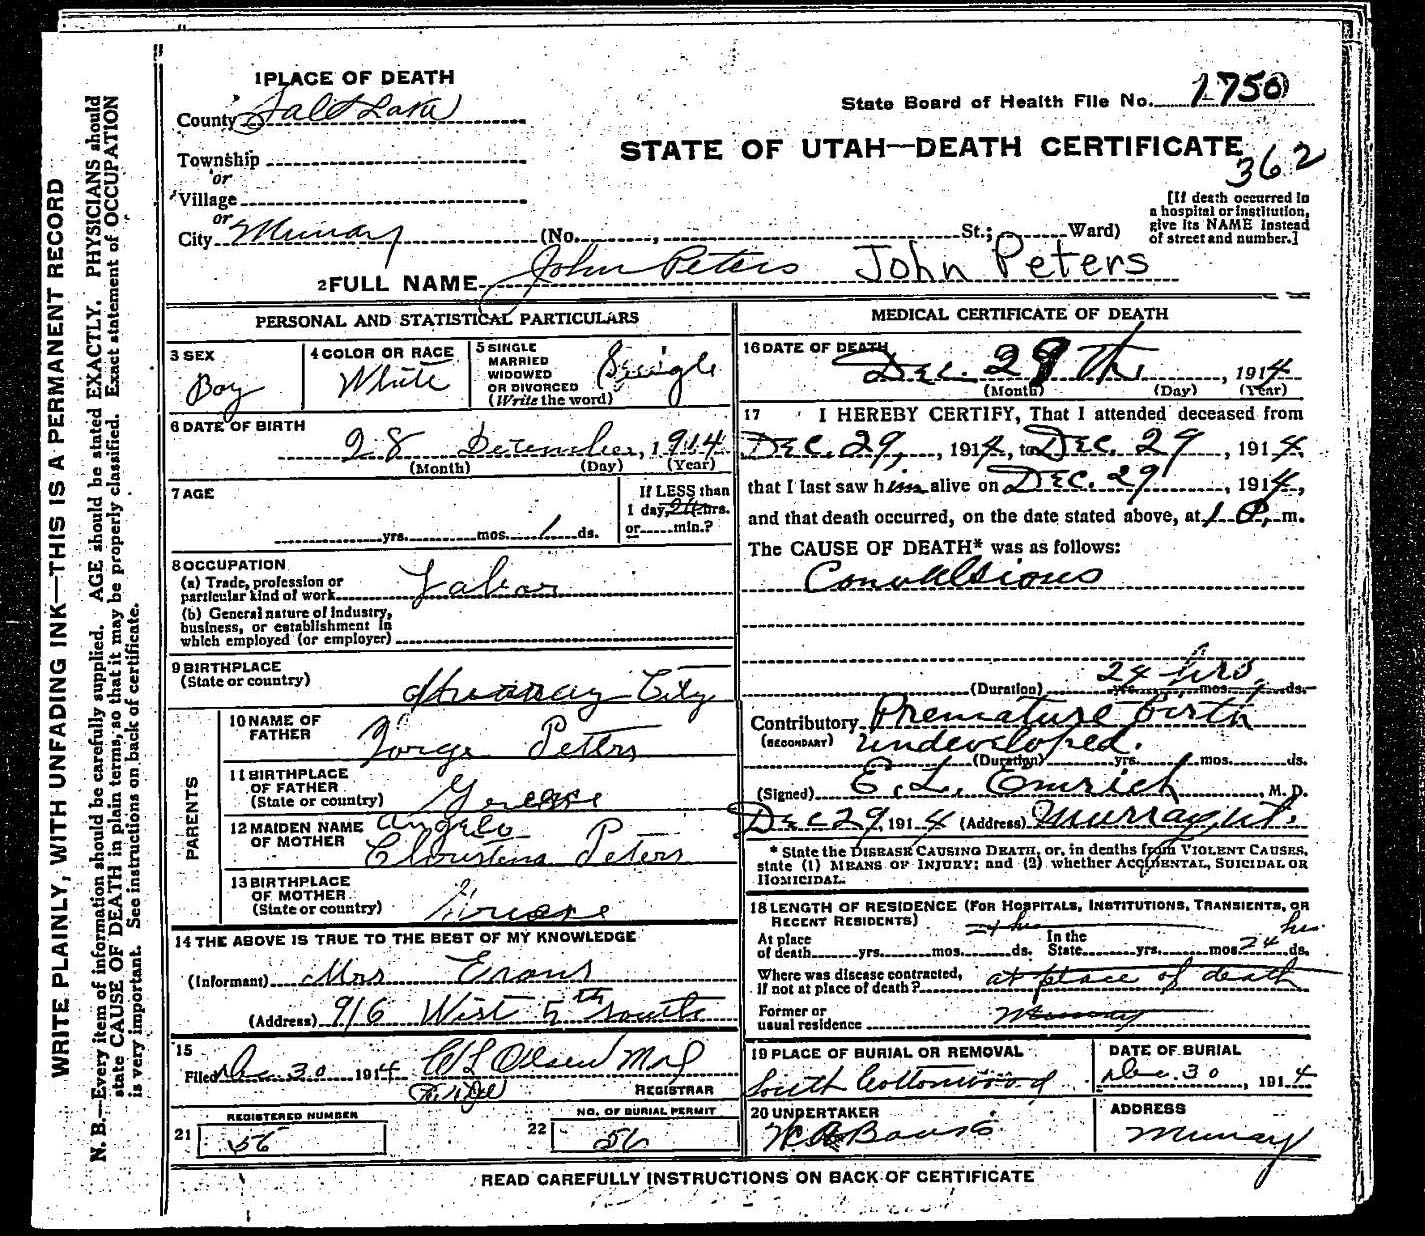 1 PLACE OF DEATH
County Salt Lake
State Board of Health File No. 1750
STATE OF UTAH—DEATH CERTIFICATE
362
Township
or
Village
or
City Murray (No. , St.; Ward)
[If death occurred in
a hospital or institution,
give its NAME instead
of street and number.]
2 FULL NAME John Peters John Peters
PERSONAL AND STATISTICAL PARTICULARS
3 SEX
Boy
4 COLOR OR RACE
White
5 SINGLE
MARRIED
WIDOWED
OR DIVORCED
(Write the word)
Single
6 DATE OF BIRTH
28 December, 1914
(Month) (Day) (Year)
7 AGE
yrs. mos. 1 ds.
If LESS than
1 day, 24 hrs.
or min.?
8 OCCUPATION
(a) Trade, profession or
particular kind of work Labor
(b) General nature of industry,
business, or establishment in
which employed (or employer)
9 BIRTHPLACE
(State or country)
Murray City
PARENTS
10 NAME OF
FATHER
Gorge Peters
11 BIRTHPLACE
OF FATHER
(State or country)
Grease
12 MAIDEN NAME
OF MOTHER
Angelo
Christina Peters
13 BIRTHPLACE
OF MOTHER
(State or country)
Grease
14 THE ABOVE IS TRUE TO THE BEST OF MY KNOWLEDGE
(Informant) Mrs Evans
(Address) 916 West 5th South
15
Filed Dec 30 1914 Olsen
REGISTRAR
REGISTERED NUMBER
21 56
NO. OF BURIAL PERMIT
22 56
MEDICAL CERTIFICATE OF DEATH
16 DATE OF DEATH
Dec. 29th, 1914
(Month) (Day) (Year)
17 I HEREBY CERTIFY, That I attended deceased from
Dec. 29, 1914, to Dec. 29, 1914,
that I last saw him alive on Dec. 29, 1914,
and that death occurred, on the date stated above, at 1 P. m.
The CAUSE OF DEATH* was as follows:
Convulsions
24 hrs.
(Duration) yrs. mos. ds.
Contributory Premature birth
(SECONDARY) undeveloped.
(Duration) yrs. mos. ds.
(Signed) E. L. Emrich, M. D.
Dec 29, 1914 (Address) Murray, Ut.
* State the DISEASE CAUSING DEATH, or, in deaths from VIOLENT CAUSES,
state (1) MEANS OF INJURY; and (2) whether ACCIDENTAL, SUICIDAL OR
HOMICIDAL.
18 LENGTH OF RESIDENCE (FOR HOSPITALS, INSTITUTIONS, TRANSIENTS, OR
RECENT RESIDENTS)
At place
of death yrs. mos. ds. In the
State yrs. mos. 24 hrs ds.
Where was disease contracted,
if not at place of death? at place of death
Former or
usual residence Murray
19 PLACE OF BURIAL OR REMOVAL
South Cottonwood
DATE OF BURIAL
Dec. 30, 1914
20 UNDERTAKER
ADDRESS
Murray
READ CAREFULLY INSTRUCTIONS ON BACK OF CERTIFICATE
WRITE PLAINLY, WITH UNFADING INK—THIS IS A PERMANENT RECORD
N. B.—Every item of information should be carefully supplied. AGE should be stated EXACTLY. PHYSICIANS should
state CAUSE OF DEATH in plain terms, so that it may be properly classified. Exact statement of OCCUPATION
is very important. See instructions on back of certificate.